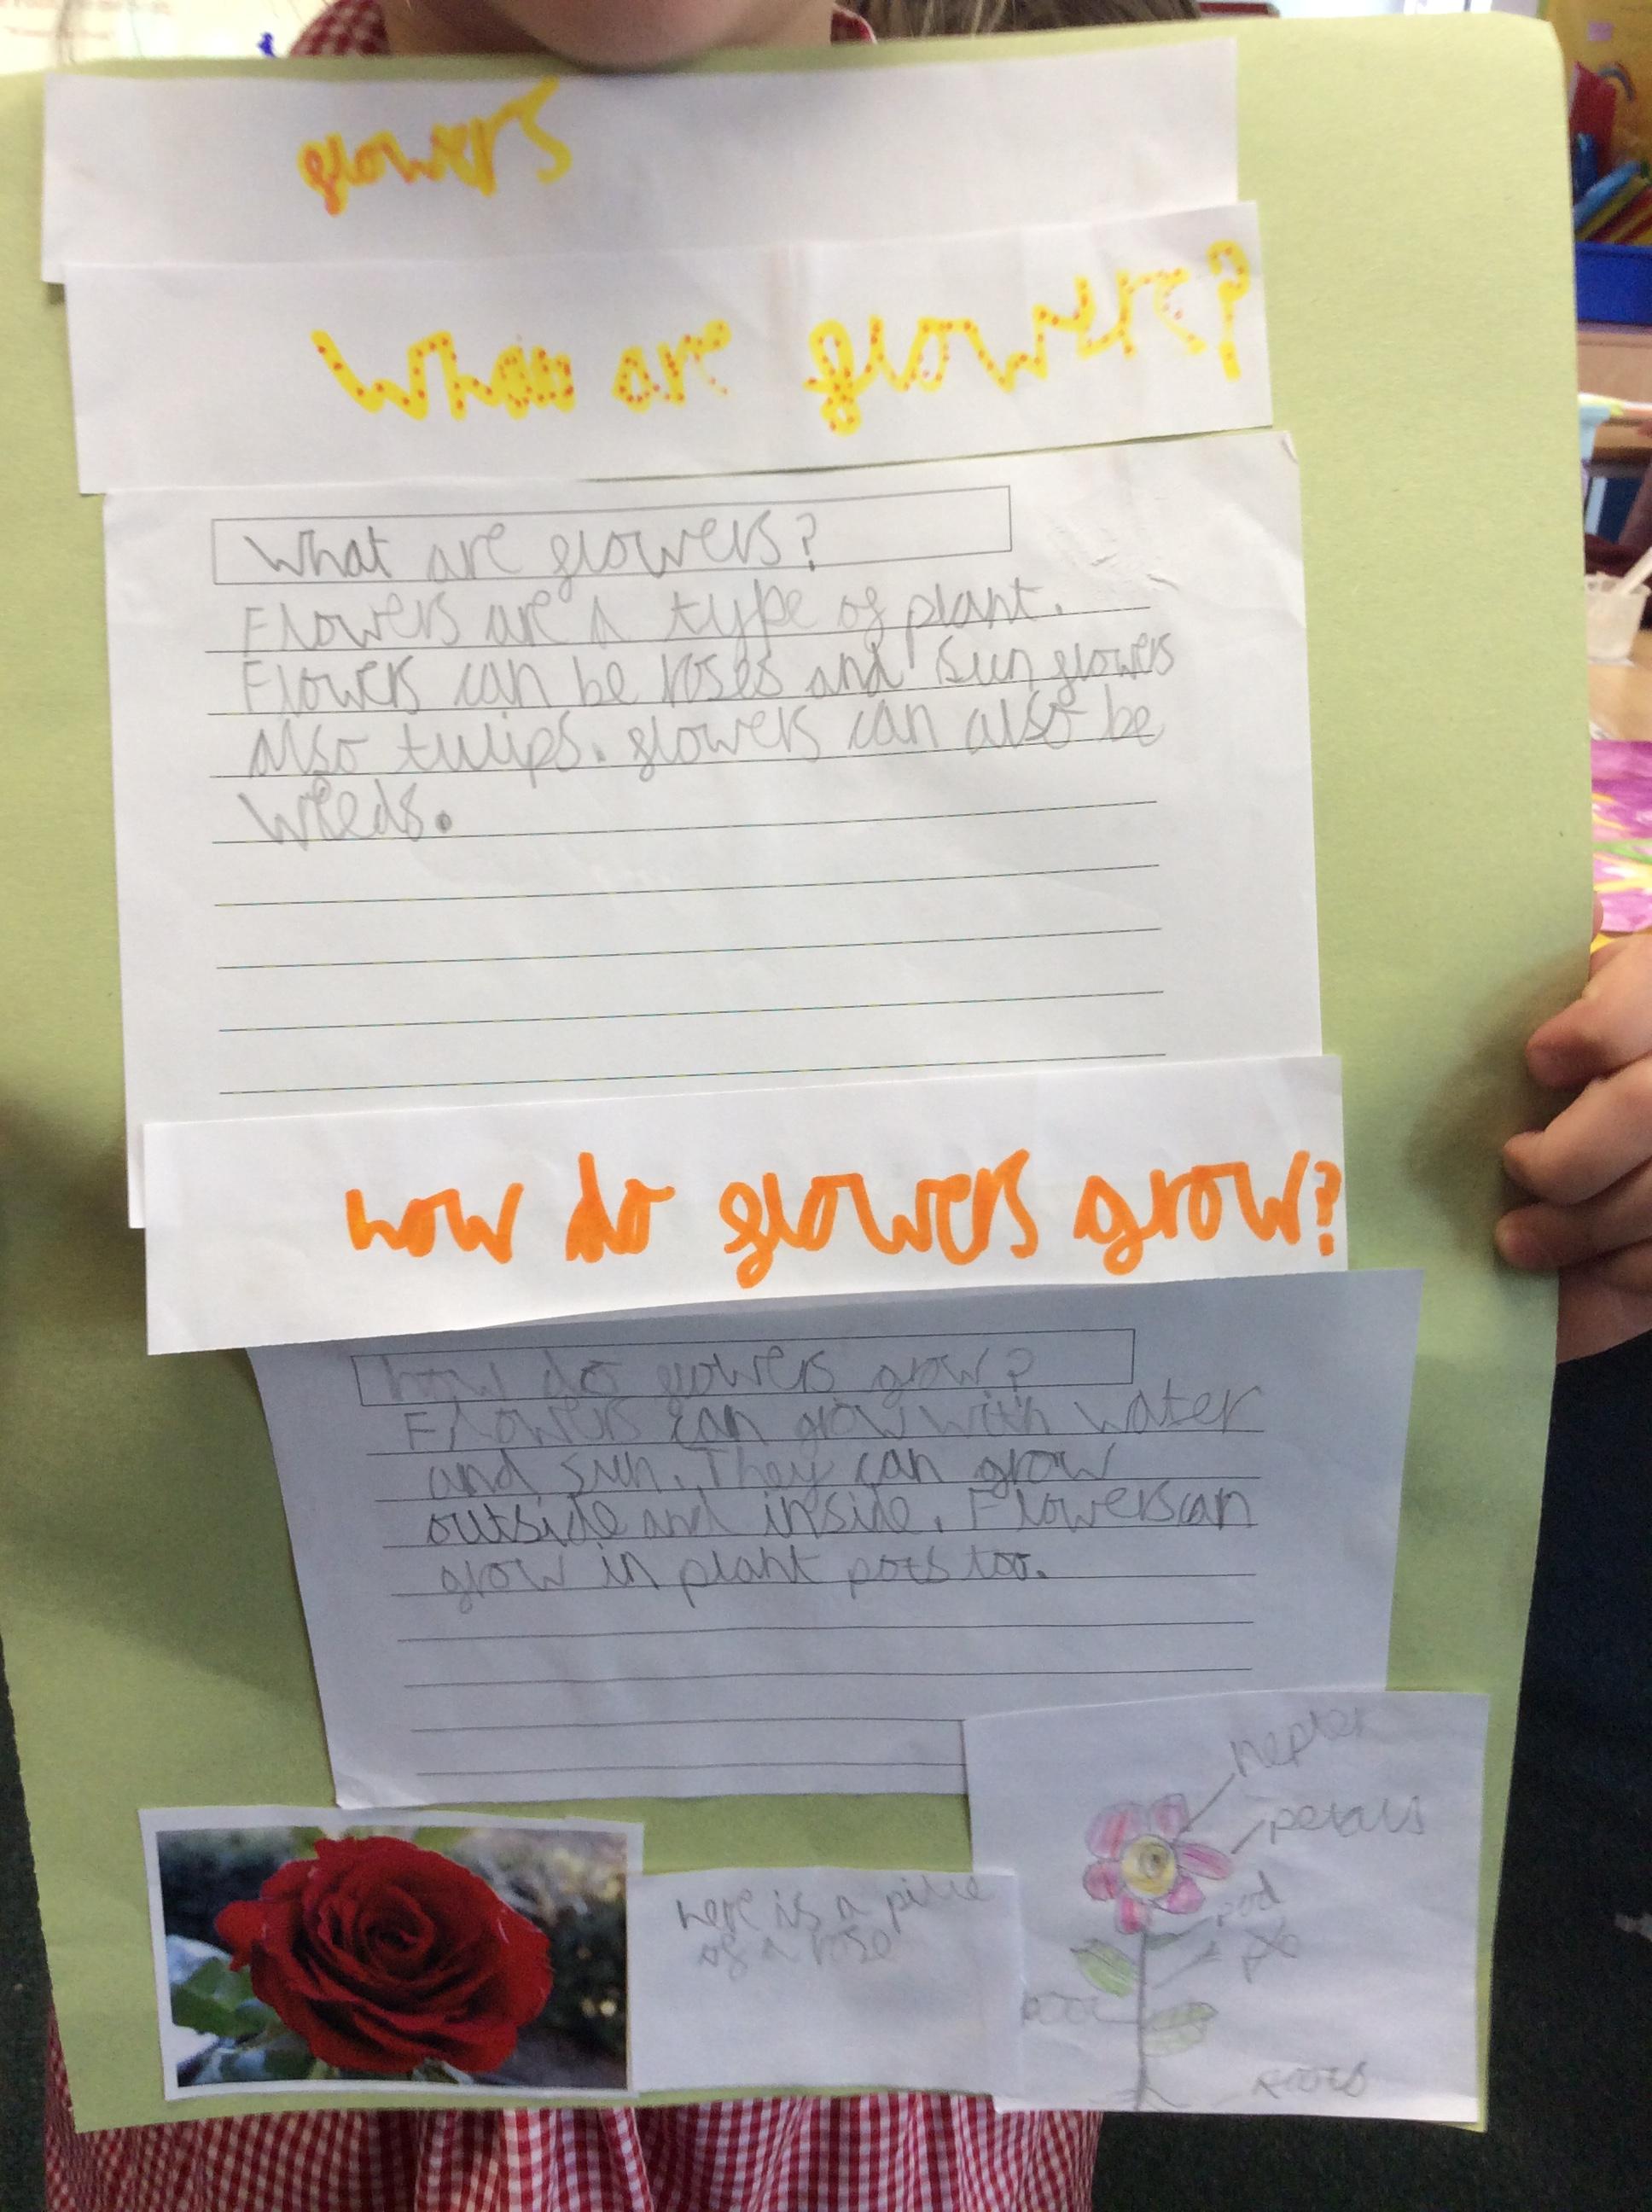 flowers
What are flowers?
What are flowers?
Flowers are a type of plant.
Flowers can be roses and sunflowers
also tulips. flowers can also be
wieds.
how do flowers grow?
how do flowers grow?
Flowers can grow with water
and sun. They can grow
outside and inside. Flowers can
grow in plant pots too.
here is a
of a rose
nepter
petals
pod
roots